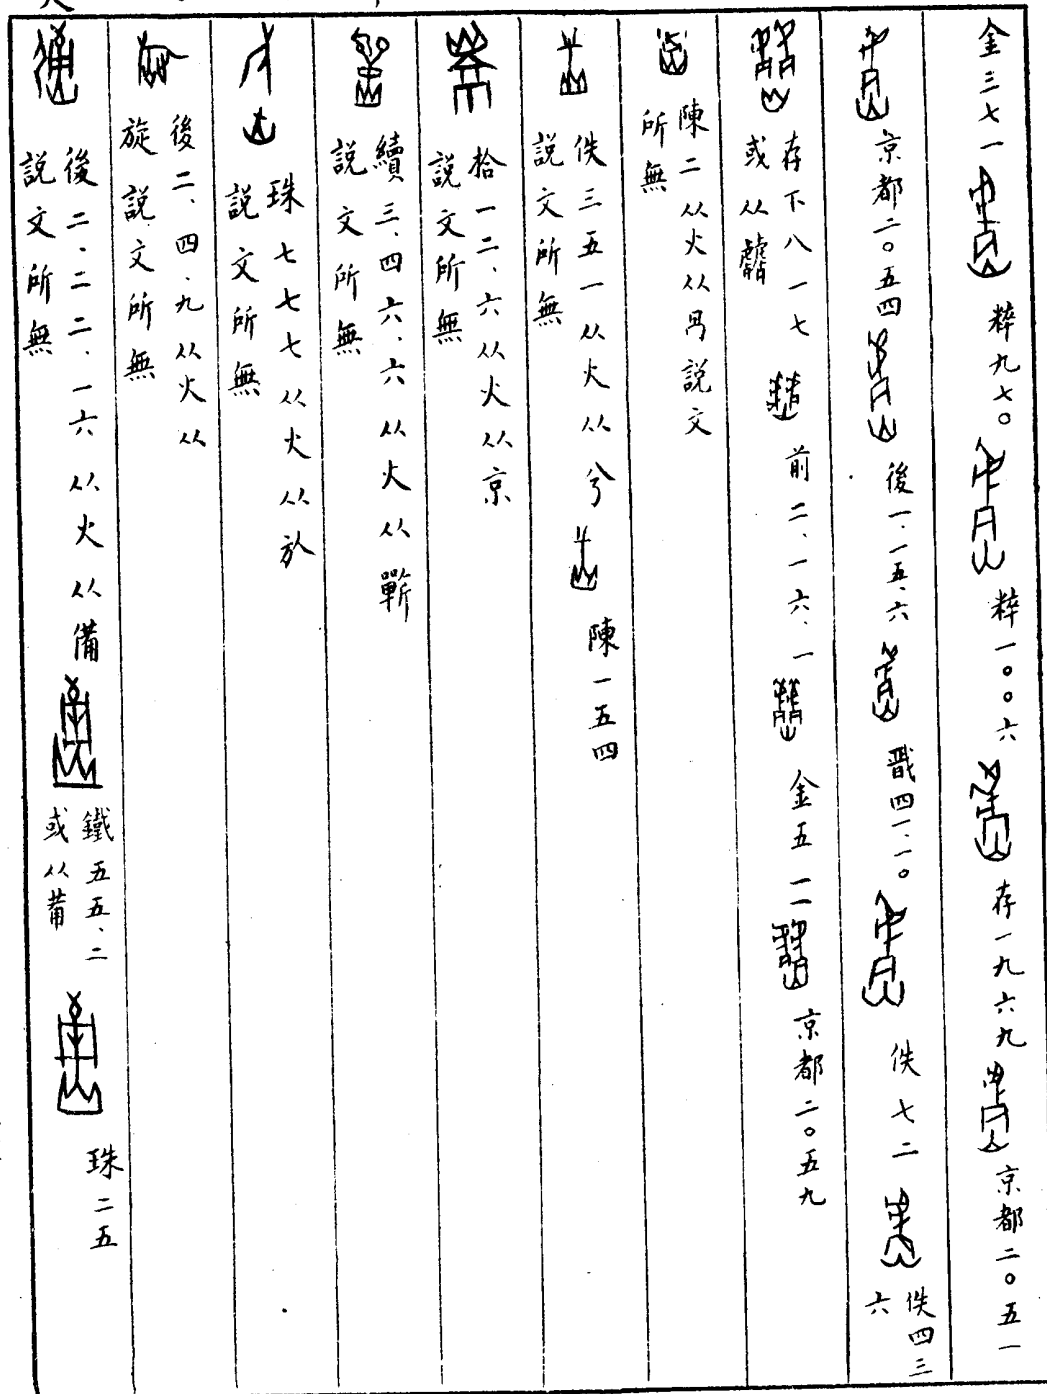 金三七一 粹九七〇 粹一〇〇六 存一九六九 京都二〇五一
京都二〇五四 後一.一五.六 戩四一.一〇 佚七二 佚四三六
存下八一七 或从 前二.一六.一 金五一一 京都二〇五九
陳二 从火从 説文所無
佚三五一 从火从兮 説文所無 陳一五四
拾一二.六 从火从京 説文所無
續三.四六.六 从火从斷 説文所無
珠七七七 从火从㫃 説文所無
後二.四.九 从火从旋 説文所無
後二.二二.一六 从火从備 説文所無 鐵五五.二 或从𤰇 珠二五